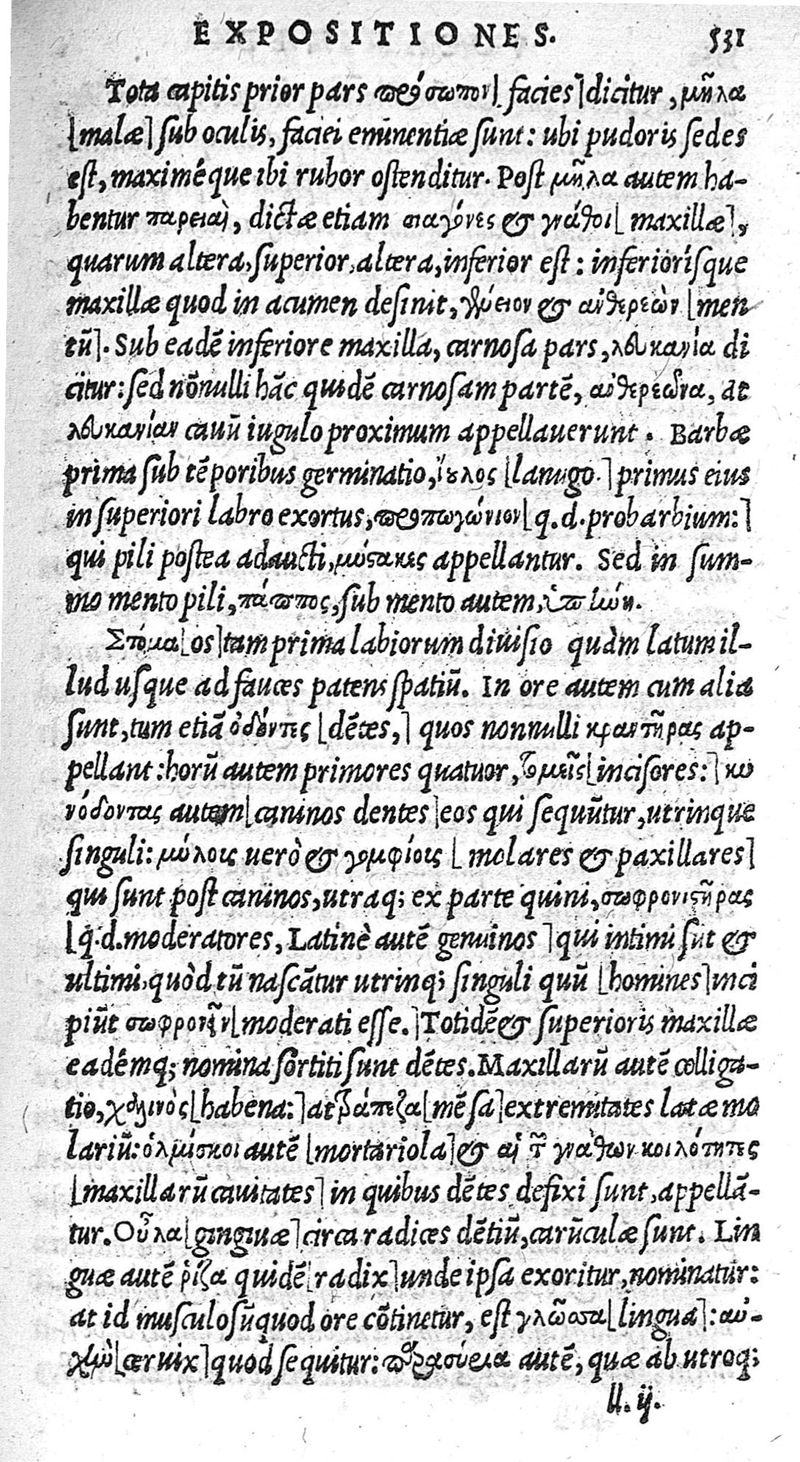 EXPOSITIONES. 531
Tota capitis prior pars πρόσωπον[ facies]dicitur, μῆλα
[malæ] sub oculis, faciei eminentiæ sunt: ubi pudoris sedes
est, maximéque ibi rubor ostenditur. Post μῆλα autem ha-
bentur παρειαὶ, dictæ etiam σιαγόνες & γνάθοι[ maxillæ],
quarum altera, superior, altera, inferior est: inferiorísque
maxillæ quod in acumen desinit, γένειον & ἀνθερεὼν [men
tũ]. Sub eadẽ inferiore maxilla, carnosa pars, λευκανία di
citur: sed nõnulli hãc quidẽ carnosam partẽ, ἀνθερεῶνα, at
λευκανίαν cauũ iugulo proximum appellauerunt. Barbæ
prima sub tẽporibus germinatio, ἴουλος [lanugo.] primus eius
in superiori labro exortus, προπωγώνιον[ q.d. probarbium:]
qui pili postea adaucti, μύστακες appellantur. Sed in sum-
mo mento pili, πάππος, sub mento autem, ὑπήνη.
Στόμα[os]tam prima labiorum diuisio quàm latum il-
lud usque ad fauces patens spatiũ. In ore autem cum alia
sunt, tum etiã ὀδόντες [dẽtes,] quos nonnulli κραντῆρας ap-
pellant: horũ autem primores quatuor, τομεῖς[incisores:] κυ
νόδοντας autem[caninos dentes]eos qui sequũtur, utrinque
singuli: μύλοις uerò & γομφίοις [ molares & paxillares]
qui sunt post caninos, utraq; ex parte quini, σωφρονιστῆρας
[q.d. moderatores, Latinè autẽ genuinos ] qui intimi sũt &
ultimi, quòd tũ nascãtur utrinq; singuli quũ [homines]inci
piũt σωφρονεῖν[moderati esse.]Totidẽ & superioris maxillæ
eadẽmq; nomina sortiti sunt dẽtes. Maxillarũ autẽ colliga-
tio, χαλινὸς[habena:]at τράπεζα[mẽsa]extremitates latæ mo
lariũ: ὁλμίσκοι autẽ [mortariola]& αἱ τῶν γνάθων κοιλότητες
[maxillarũ cauitates] in quibus dẽtes defixi sunt, appellã-
tur. Οὖλα[gingiuæ]circa radices dẽtiũ, carũculæ sunt. Lin
guæ autẽ ῥίζα quidẽ[radix]unde ipsa exoritur, nominatur:
at id musculosũ quod ore cõtinetur, est γλῶσσα[lingua]: αὐ-
χὴν[ceruix]quod sequitur: autẽ, quæ ab utroq;
ll. ij.